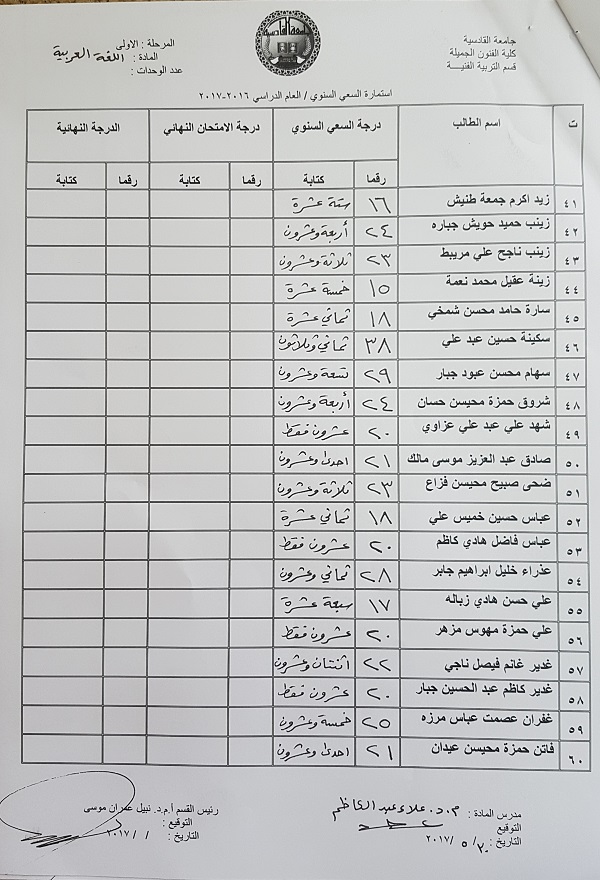 جامعة القادسية
كلية الفنون الجميلة
قسم التربية الفنيـــة
المرحلة : الاولى
المادة : اللغة العربية
عدد الوحدات :
استمارة السعي السنوي / العام الدراسي ٢٠١٦-٢٠١٧
ت اسم الطالب درجة السعي السنوي درجة الامتحان النهائي الدرجة النهائية
رقما كتابة رقما كتابة رقما كتابة
٤١ زيد اكرم جمعة طنيش ١٦ ستة عشرة
٤٢ زينب حميد حويش جباره ٢٤ أربعة وعشرون
٤٣ زينب ناجح علي مريبط ٢٣ ثلاثة وعشرون
٤٤ زينة عقيل محمد نعمة ١٥ خمسة عشرة
٤٥ سارة حامد محسن شمخي ١٨ ثماني عشرة
٤٦ سكينة حسين عبد علي ٣٨ ثماني وثلاثون
٤٧ سهام محسن عبود جبار ٢٩ تسعة وعشرون
٤٨ شروق حمزة محيسن حسان ٢٤ أربعة وعشرون
٤٩ شهد علي عبد علي عزاوي ٢٠ عشرون فقط
٥٠ صادق عبد العزيز موسى مالك ٢١ احدى وعشرون
٥١ ضحى صبيح محيسن فزاع ٢٣ ثلاثة وعشرون
٥٢ عباس حسين خميس علي ١٨ ثماني عشرة
٥٣ عباس فاضل هادي كاظم ٢٠ عشرون فقط
٥٤ عذراء خليل ابراهيم جابر ٢٨ ثماني وعشرون
٥٥ علي حسن هادي زباله ١٧ سبعة عشرة
٥٦ علي حمزة مهوس مزهر ٢٠ عشرون فقط
٥٧ غدير غانم فيصل ناجي ٢٢ اثنتان وعشرون
٥٨ غدير كاظم عبد الحسين جبار ٢٠ عشرون فقط
٥٩ غفران عصمت عباس مرزه ٢٥ خمسة وعشرون
٦٠ فاتن حمزة محيسن عيدان ٢١ احدى وعشرون
مدرس المادة : م.د. علاء عبد الكاظم
التوقيع
التاريخ : ٢٠١٧/٥/٢٠
رئيس القسم أ.م.د. نبيل عمران موسى
التوقيع :
التاريخ : / /٢٠١٧